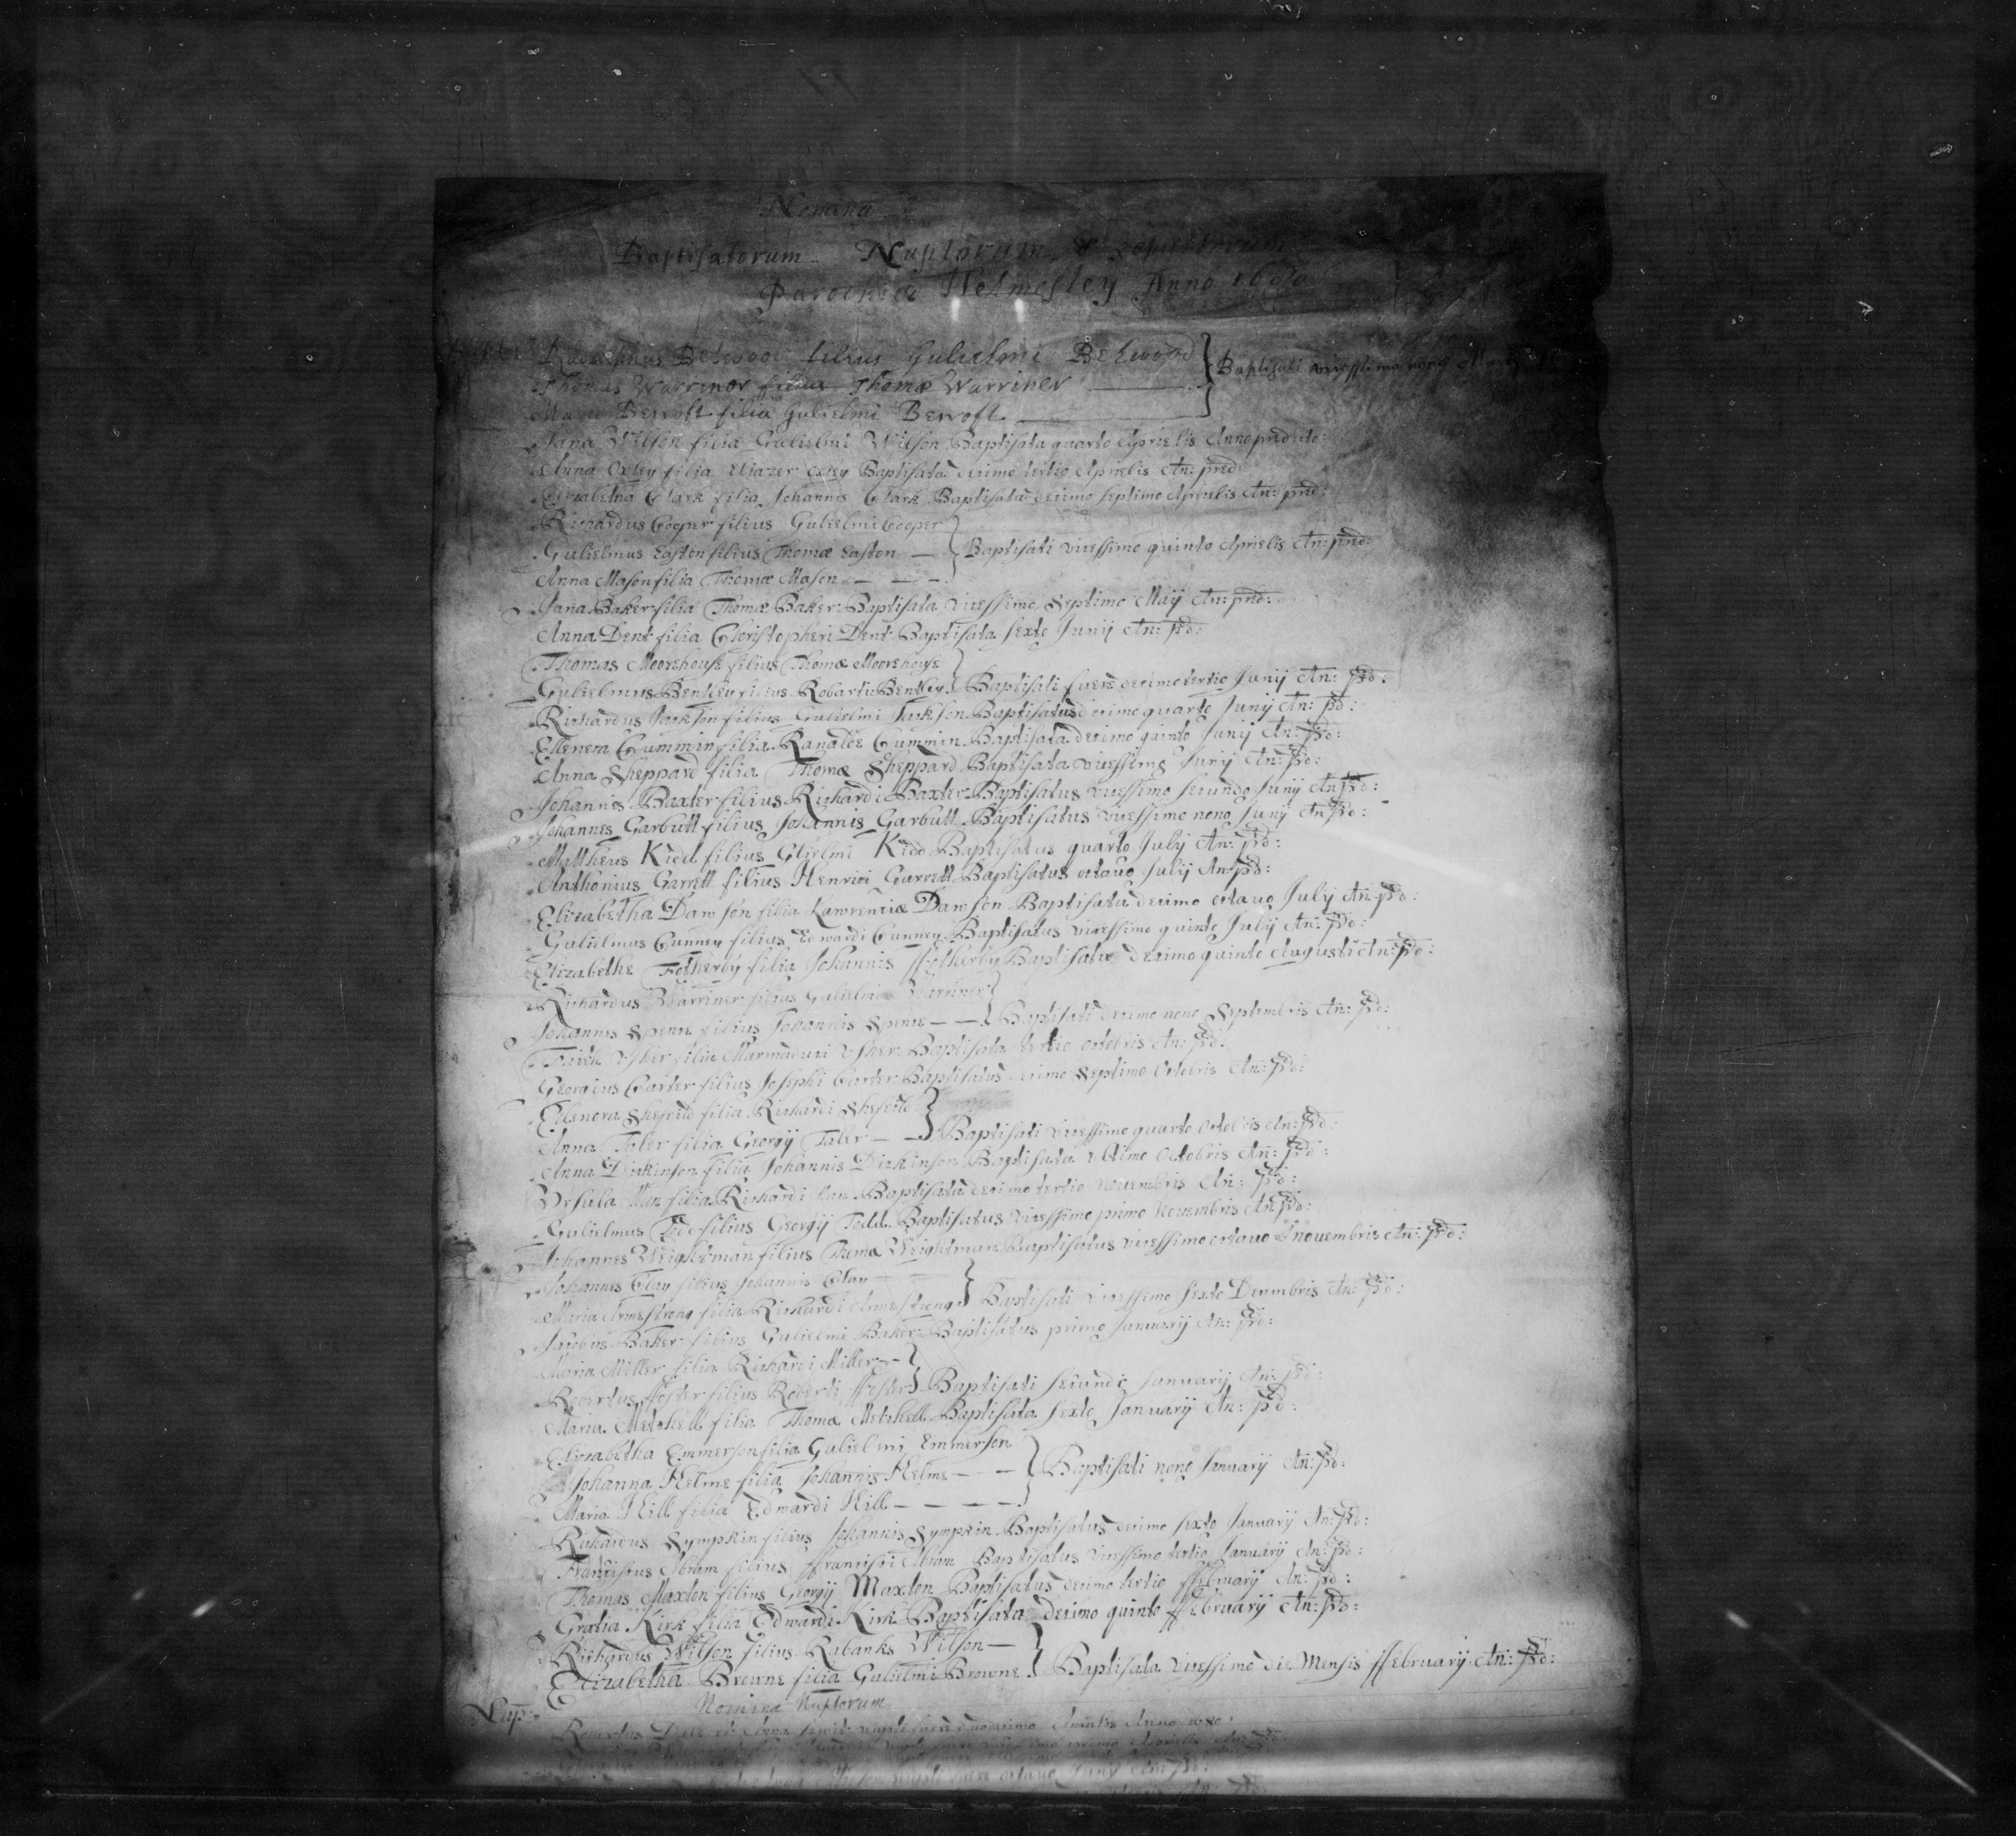 Nomina
Baptisatorum Nuptorum & Sepultorum
Parochiæ Helmesley Anno 1680
Betwood filius Gulielmi Betwood } Baptisati vicessimo nono
Thomas Warriner filius Thomæ Warriner
Bewoft filia Gulielmi Bewoft
Jana Wilson filia Gulielmi Wilson Baptisata quarto Aprielis Anno predicto:
Anna Oxley filia Eliazer Oxley Baptisata decimo tertio Aprielis An: pred:
Elizabetha Clark filia Johannis Clark Baptisata decimo septimo Aprielis An: pred:
Richardus Cooper filius Gulielmi Cooper
Gulielmus Easton filius Thomæ Easton } Baptisati vicessimo quinto Aprielis An: pred:
Anna Mason filia Thomæ Mason
Jana Baker filia Thomæ Baker Baptisata vicessimo septimo Maij An: pred:
Anna Dent filia Christopheri Dent Baptisata sexto Junij An: prd:
Thomas Moorehouse filius Thomæ Moorehouse
Gulielmus Bentley filius Robarti Bentley } Baptisati fuere decimo tertio Junij An: prd:
Richardus Jackson filius Gulielmi Jackson Baptisatus decimo quarto Junij An: prd:
Ellenera Cummin filia Ranalde Cummin Baptisata decimo quinto Junij An: prd:
Anna Sheppard filia Thomæ Sheppard Baptisata vicessimo Junij An: prd:
Johannes Baxter filius Richardi Baxter Baptisatus vicessimo secundo Junij An: prd:
Johannes Garbutt filius Johannis Garbutt Baptisatus vicessimo nono Junij An: prd:
Mattheus Kidd filius Glielmi Kidd Baptisatus quarto July An: prd:
Anthonius Garrett filius Henrici Garrett Baptisatus octavo July An: prd:
Elizabetha Dawson filia Lawrenciæ Dawson Baptisata decimo octavo July An: prd:
Gulielmus Gunney filius Edwardi Gunney Baptisatus vicessimo quinto July An: prd:
Elizabethe Fotherby filia Johannis ffotherby Baptisatæ decimo quinto Augusti An: prd:
Richardus Warriner filius Gulielmi Warriner
Johannis Spenn filius Johannis Spenn } Baptisati decimo nono Septembris An: prd:
Usher filia Marmaduci Usher Baptisata tertio Octobris An: prd:
Georgius Carter filius Josephi Carter Baptisatus decimo septimo Octobris An: prd:
Ellenora Shefeild filia Richardi Shefeild
Anna Taler filia Georgij Taler } Baptisati vicessimo quarto Octobris An: prd:
Anna Dickenson filia Johannis Dickinson Baptisata ultimo Octobris An: prd:
Ursula filia Richardi Baptisata decimo tertio Novembris An: prd:
Gulielmus Todd filius Georgij Todd Baptisatus vicessimo primo Novembris An: prd:
Johannes Weightman filius Thomæ Weightman Baptisatus vicessimo octavo Novembris An: prd:
Johannes Clay filius Johannis Clay
Maria Armestrong filia Richardi Armestrong } Baptisati vicessimo sexto Decembris An: prd:
Jacobus Baker filius Gulielmi Baker Baptisatus primo January An: prd:
Maria Miller filia Richardi Miller
Robertus ffoster filius Roberti ffoster } Baptisati secundo January An: prd:
Maria Metchell filia Thomæ Metchell Baptisata sexto January An: prd:
Elizabetha Emmerson filia Gulielmi Emmerson
Johanna Helme filia Johannis Helme } Baptisati nono January An: prd:
Maria Hill filia Edwardi Hill
Richardus Sympkin filius Johannis Sympkin Baptisatus decimo sexto January An: prd:
Franciscus Abram filius ffrancisci Abram Baptisatus vicessimo tertio January An: prd:
Thomas Maxton filius Georgij Maxton Baptisatus decimo tertio ffebruary An: prd:
Gratia Kirk filia Edwardi Kirk Baptisata decimo quinto ffebruary An: prd:
Richardus Wilson filius Rabanks Wilson
Elizabetha Browne filia Gulielmi Browne } Baptisata vicessimo die Mensis ffebruary An: prd:
Nup: Nomina Nuptorum
Robertus et Anna nupti fuere duodecimo Aprielis Anno 1680
nupti fuere octavo Juny An: prd: